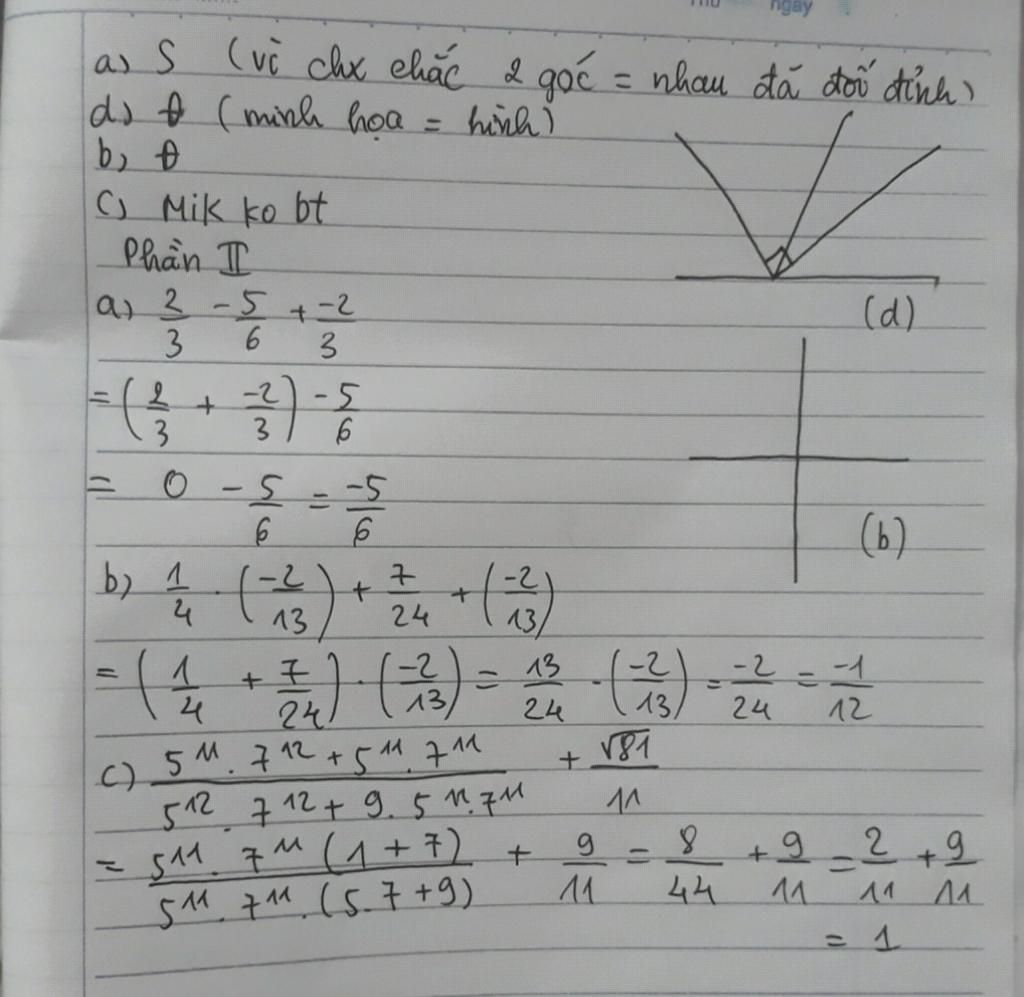 Thứ ngày
a) S (vì chx chắc 2 góc = nhau đã đối đỉnh)
d) Đ (minh họa = hình)
b) Đ
c) Mik ko bt
Phần II
(d)
a) 2/3 - 5/6 + -2/3
= (2/3 + -2/3) - 5/6
= 0 - 5/6 = -5/6
(b)
b) 1/4 . (-2/13) + 7/24 + (-2/13)
= (1/4 + 7/24) . (-2/13) = 13/24 . (-2/13) = -2/24 = -1/12
c) (5^11 . 7^12 + 5^11 . 7^11)/(5^12 . 7^12 + 9 . 5^11 . 7^11) + √81/11
= (5^11 . 7^11 (1 + 7))/(5^11 . 7^11 . (5.7 + 9)) + 9/11 = 8/44 + 9/11 = 2/11 + 9/11
= 1